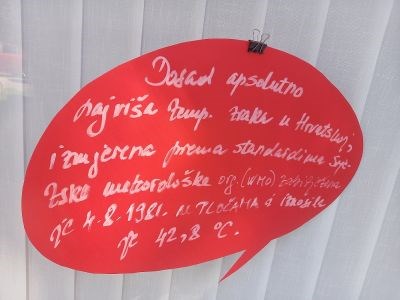 Dosad apsolutno
najviša temp. zraka u Hrvatskoj,
izmjerena prema standardima Svje-
tske meteorološke org. (WMO) zabilježena
je 4.8.1981. u PLOČAMA i iznosila
je 42,8 °C.